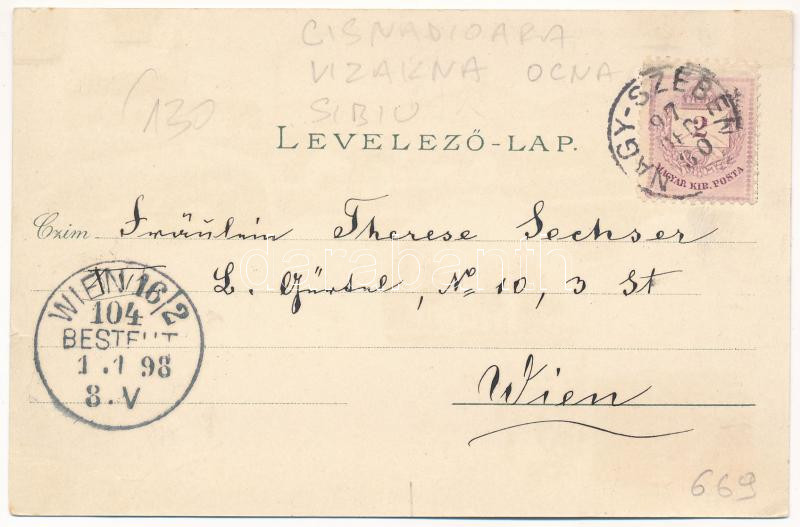 CISNADIOARA
VIZAKNA OCNA
SIBIU
130
LEVELEZŐ-LAP.
NAGY-SZEBEN
97
DEC
30
2
MAGYAR KIR. POSTA
Czim Fräulein Therese Sechser
L. Gürtel, No 10, 3 St
Wien
WIEN 16/2
104
BESTELLT
1.1 98
8.V
darabanth
669